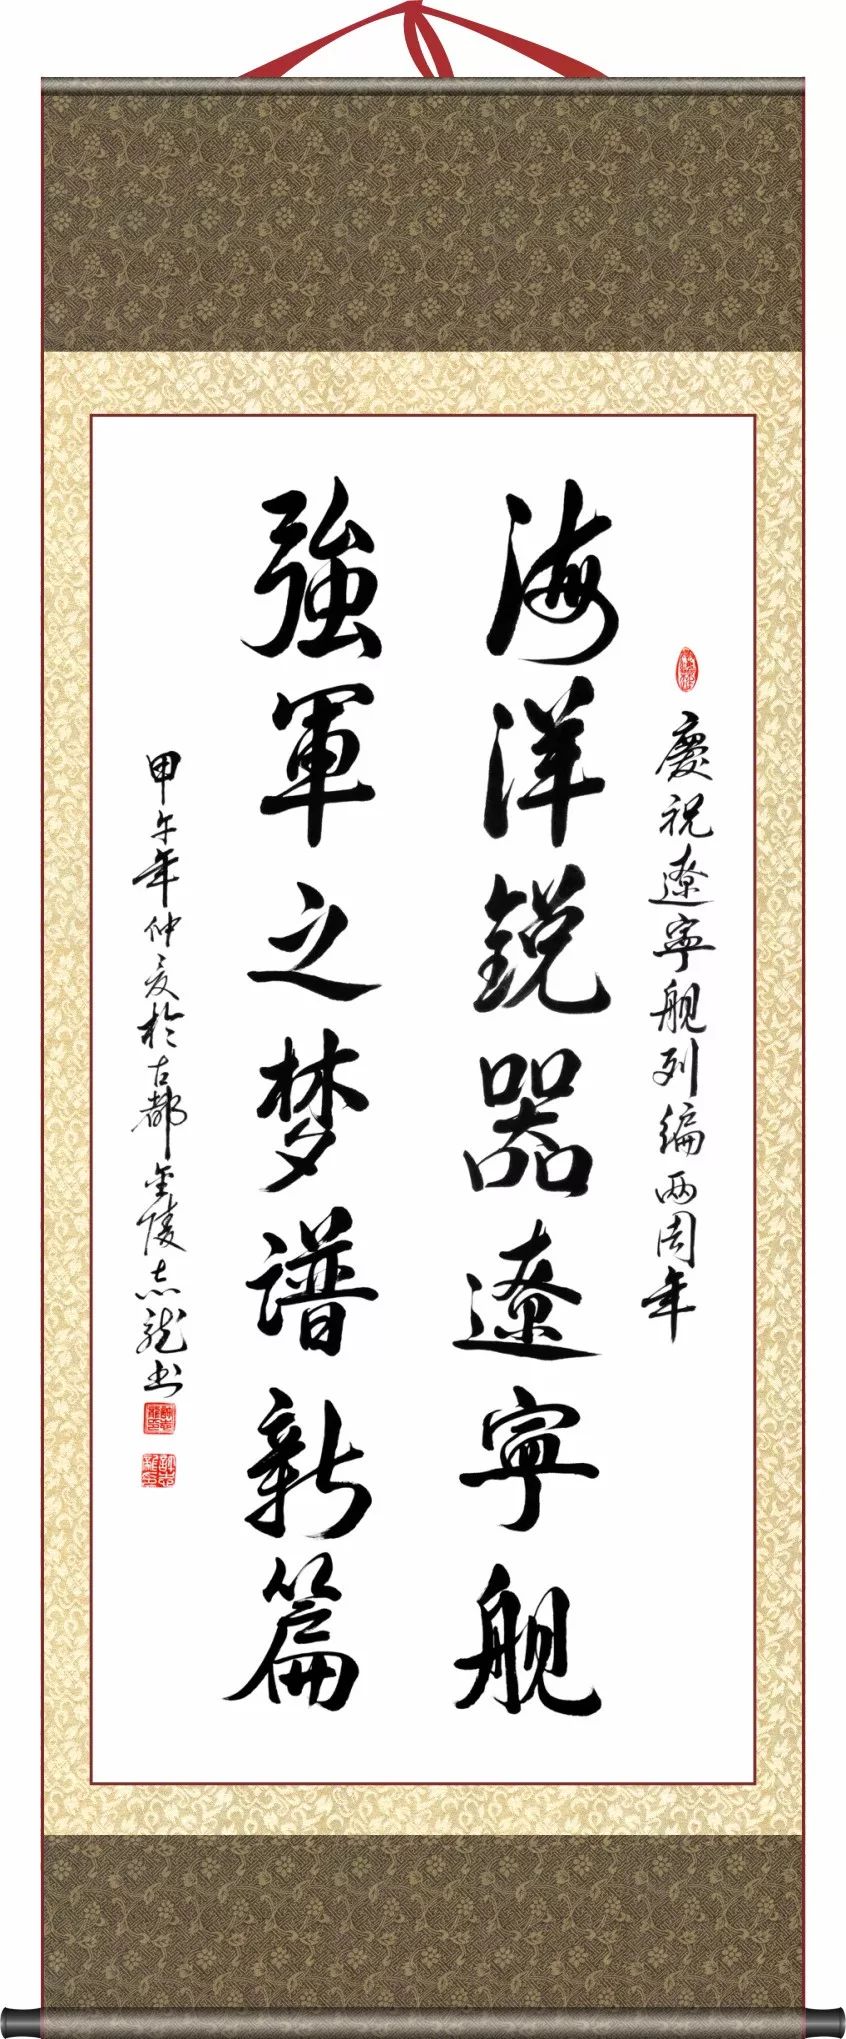 慶祝遼寧舰列编两周年
海洋锐器遼寧舰
強軍之梦谱新篇
甲午年仲夏於古都金陵志龍书